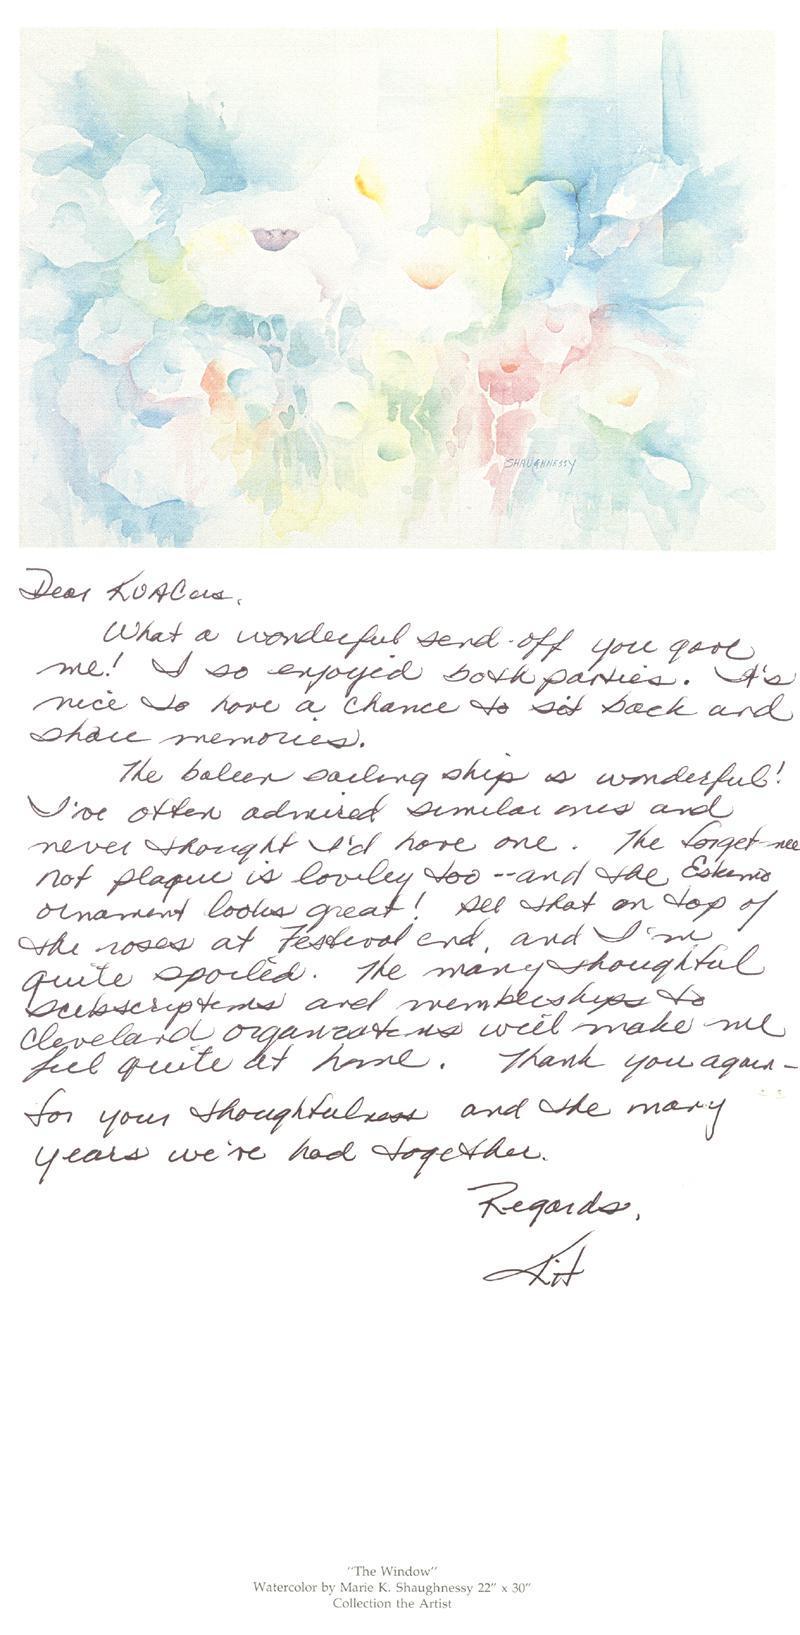 SHAUGHNESSY
Dear KUACers,
What a wonderful send-off you gave
me! I so enjoyed both parties. It's
nice to have a chance to sit back and
share memories.
The baleen sailing ship is wonderful!
I've often admired similar ones and
never thought I'd have one. The forget-me
not plaque is lovley too -- and the Eskimo
ornament looks great! All that on top of
the roses at Festival end, and I'm
quite spoiled. The many thoughtful
subscriptions and memberships to
Cleveland organizations will make me
feel quite at home. Thank you again -
for your thoughtfulness and the many
years we've had together.
Regards,
Kit
"The Window"
Watercolor by Marie K. Shaughnessy 22" x 30"
Collection the Artist